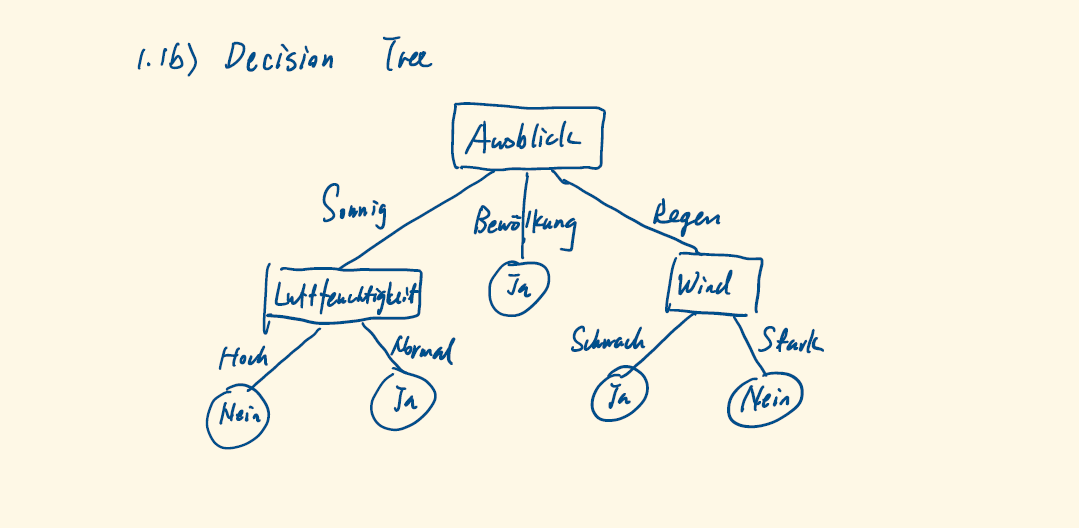 1.1b) Decision Tree
Ausblick
Sonnig
Bewölkung
Regen
Luftfeuchtigkeit
Ja
Wind
Hoch
Normal
Schwach
Stark
Nein
Ja
Ja
Nein